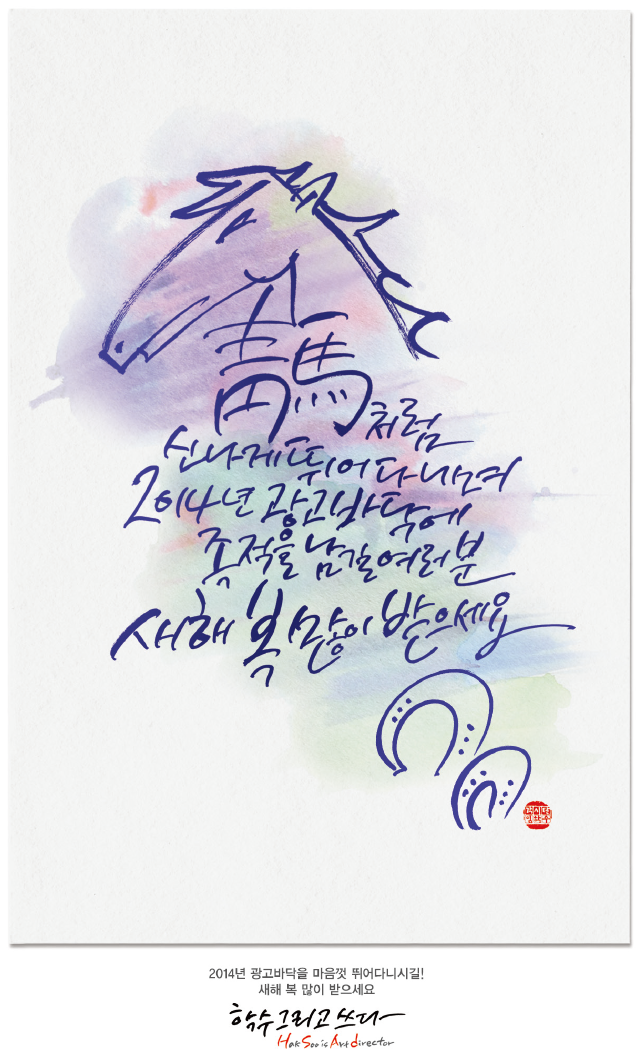 靑馬처럼
신나게 뛰어다니며
2014년 광고바닥에
족적을 남길 여러분
새해 복 많이 받으세요
2014년 광고바닥을 마음껏 뛰어다니시길!
새해 복 많이 받으세요
학수그리고쓰다
Hak Soo is Art director